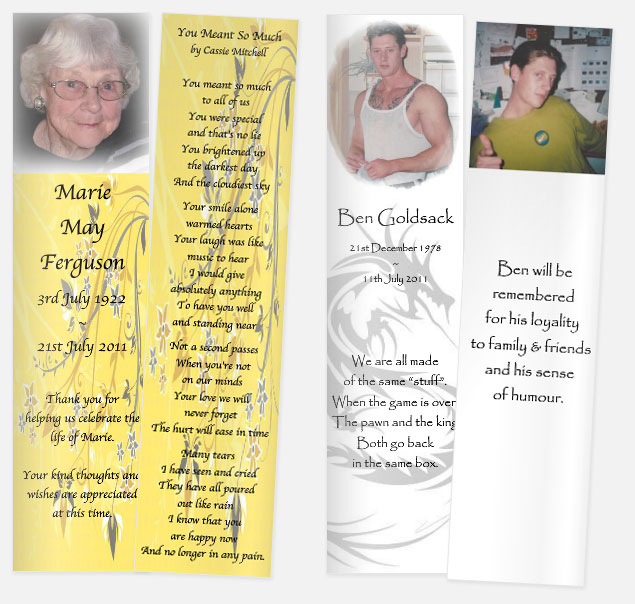 Marie
May
Ferguson
3rd July 1922
~
21st July 2011
Thank you for
helping us celebrate the
life of Marie.
Your kind thoughts and
wishes are appreciated
at this time.
You Meant So Much
by Cassie Mitchell
You meant so much
to all of us
You were special
and that's no lie
You brightened up
the darkest day
And the cloudiest sky
Your smile alone
warmed hearts
Your laugh was like
music to hear
I would give
absolutely anything
To have you well
and standing near
Not a second passes
When you're not
on our minds
Your love we will
never forget
The hurt will ease in time
Many tears
I have seen and cried
They have all poured
out like rain
I know that you
are happy now
And no longer in any pain.
Ben Goldsack
21st December 1978
~
11th July 2011
We are all made
of the same “stuff”.
When the game is over
The pawn and the king
Both go back
in the same box.
Ben will be
remembered
for his loyality
to family & friends
and his sense
of humour.